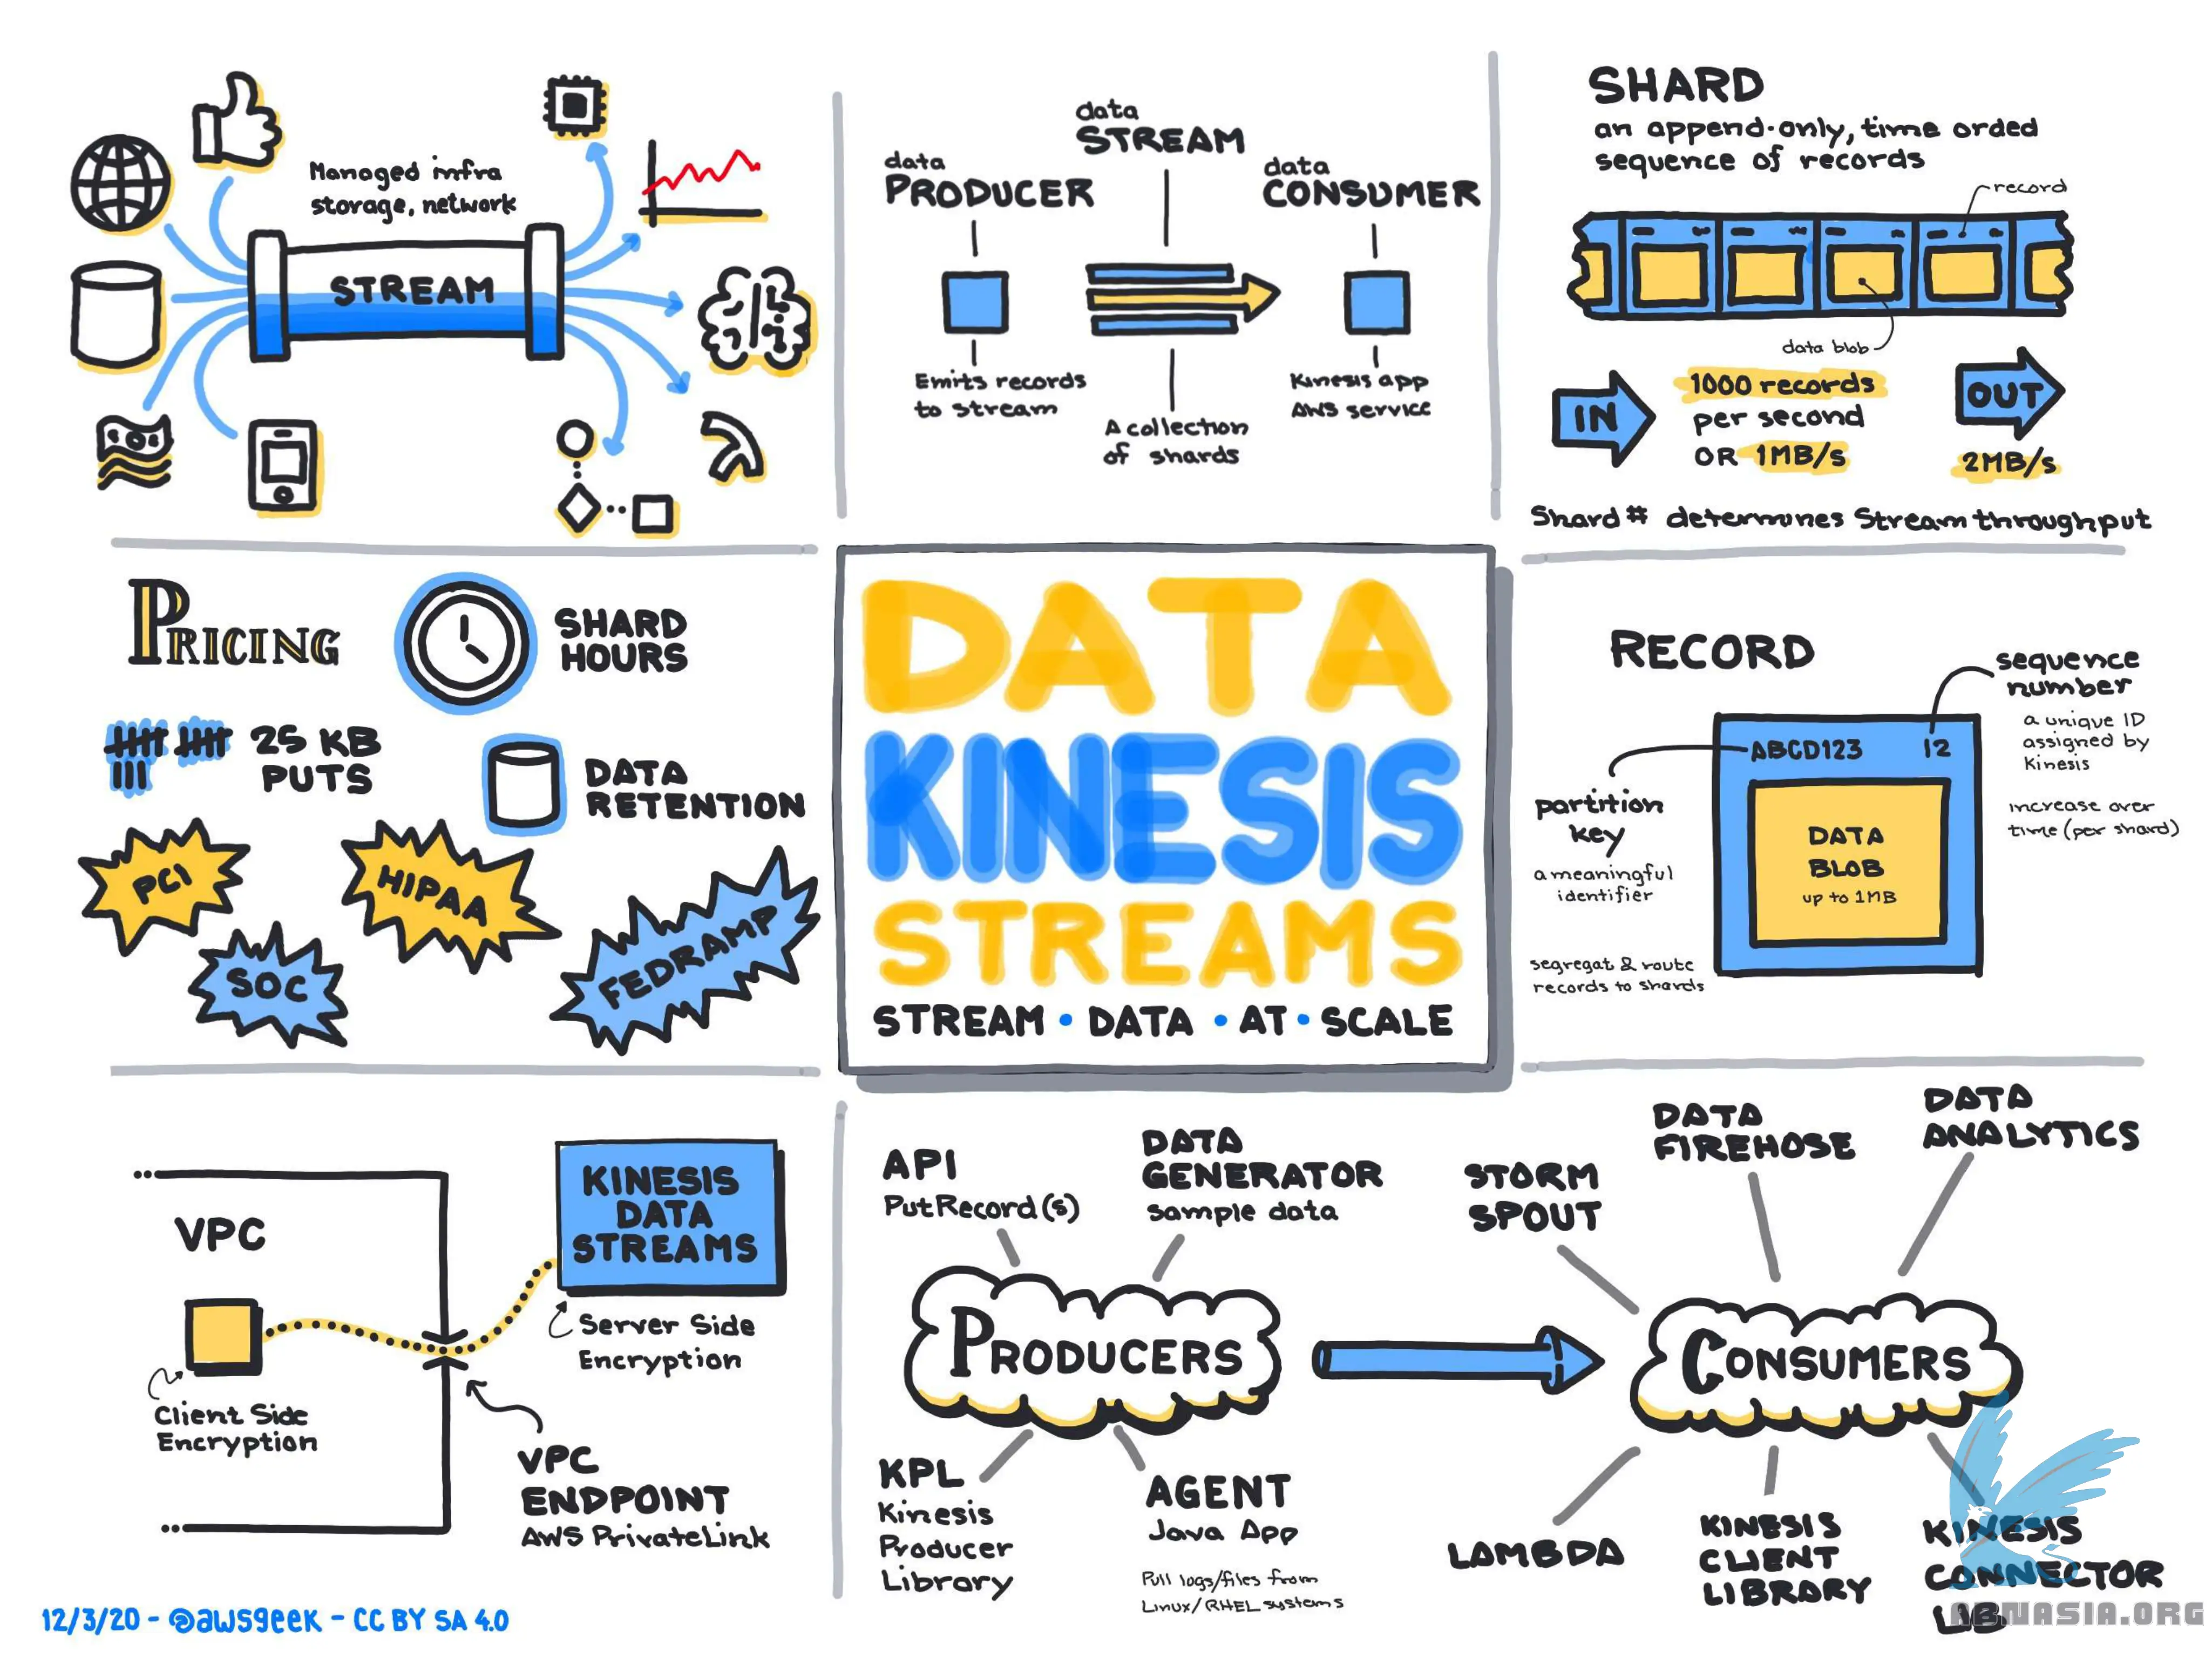 Managed infra
storage, network
STREAM
data
PRODUCER
data
STREAM
data
CONSUMER
Emits records
to stream
A collection
of shards
Kinesis app
AWS service
SHARD
an append-only, time orded
sequence of records
record
data blob
IN
1000 records
per second
OR 1MB/s
OUT
2MB/s
Shard # determines Stream throughput
PRICING
SHARD
HOURS
25 KB
PUTS
DATA
RETENTION
PCI
HIPAA
SOC
FEDRAMP
DATA
KINESIS
STREAMS
STREAM • DATA • AT • SCALE
RECORD
sequence
number
a unique ID
assigned by
Kinesis
increase over
time (per shard)
ABCD123 12
partition
key
a meaningful
identifier
segregat & route
records to shards
DATA
BLOB
up to 1MB
VPC
KINESIS
DATA
STREAMS
Server Side
Encryption
Client Side
Encryption
VPC
ENDPOINT
AWS PrivateLink
API
PutRecord(s)
DATA
GENERATOR
sample data
PRODUCERS
KPL
Kinesis
Producer
Library
AGENT
Java App
Pull logs/files from
Linux/RHEL systems
STORM
SPOUT
DATA
FIREHOSE
DATA
ANALYTICS
CONSUMERS
LAMBDA
KINESIS
CLIENT
LIBRARY
KINESIS
CONNECTOR
LIB
12/3/20 - @awsgeek - CC BY SA 4.0
ABNASIA.ORG